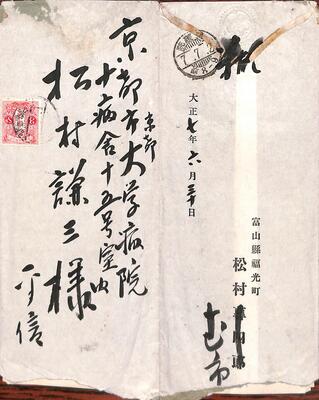 京都市大学病院
京都
十病舎十五号室内
松村謙三様
平信
大正七年六月三十日
富山縣福光町
松村